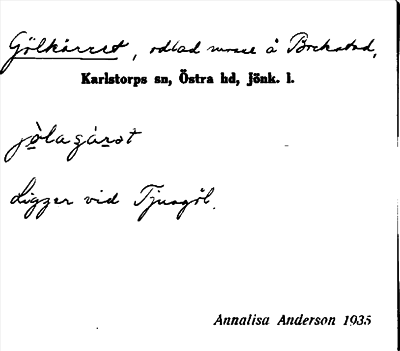 Gölkärret, odlad mosse å Bockstad,
Karlstorps sn, Östra hd, jönk. l.
jö̀lagárət
Ligger vid Tjusgöl.
Annalisa Anderson 1935